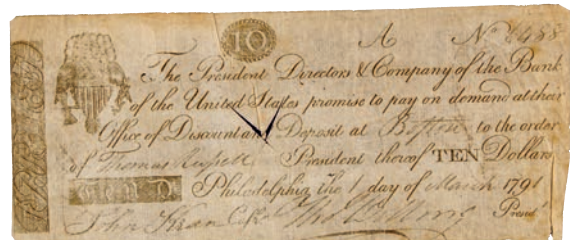 10
A N° 6488
The President Directors & Company of the Bank
of the United States promise to pay on demand at their
Office of Discount and Deposit at Boston to the order
of Thomas Russell President thereof TEN Dollars
Philadelphia, the 1 day of March 1791
John Kean Cash.r Tho Willing Presid.t